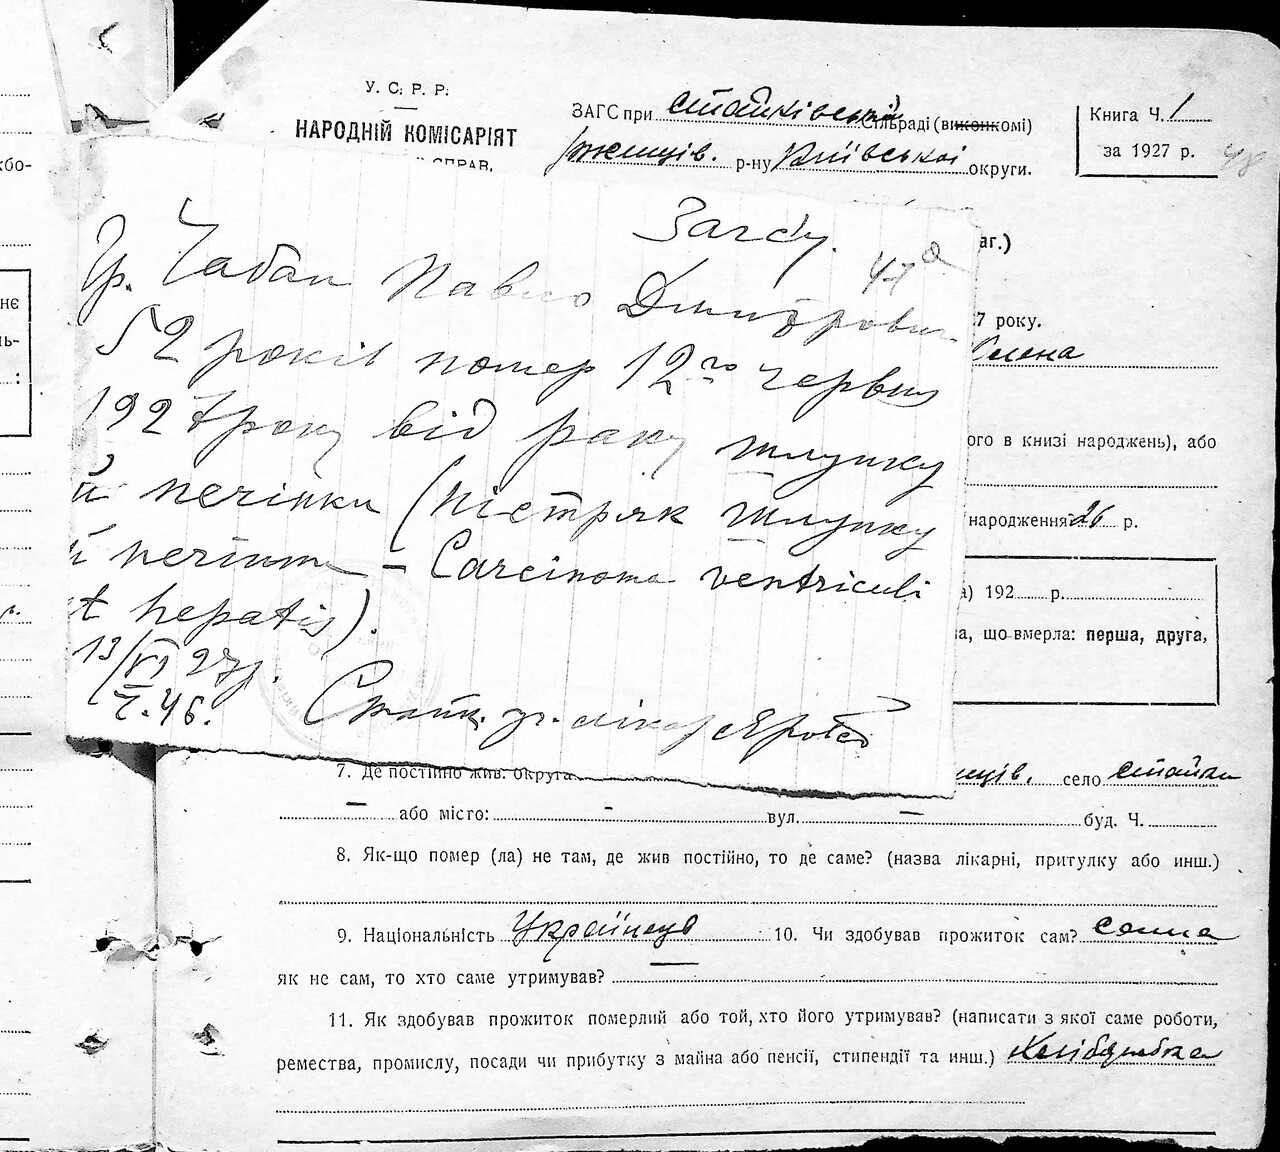 У. С. Р. Р.
НАРОДНІЙ КОМІСАРІЯТ
СПРАВ.
ЗАГС при Стайківській Сільраді (виконкомі)
Ржищів. р-ну Київської округи.
Книга Ч. 1
за 1927 р.
48
Загсу.
47
Гр. Чабан Павло Дмитрович
52 років помер 12го червня
1927 року від раку шлунку
й печінки (пістряк шлунку
й печінки – Carcinoma ventriculi
et hepatis).
13/VI 27р.
Ч. 46.
Стайк. уч. лікар
аг.)
7 року.
Олена
ого в книзі народжень), або
народження 26 р.
а) 192 р.
ва, що вмерла: перша, друга,
7. Де постійно жив: округа село Стайки
або місто: – вул. – буд. Ч.
8. Як-що помер (ла) не там, де жив постійно, то де саме? (назва лікарні, притулку або инш.)
9. Національність Українець 10. Чи здобував прожиток сам? сама
як не сам, то хто саме утримував? —
11. Як здобував прожиток померлий або той, хто його утримував? (написати з якої саме роботи,
ремества, промислу, посади чи прибутку з майна або пенсії, стипендії та инш.)